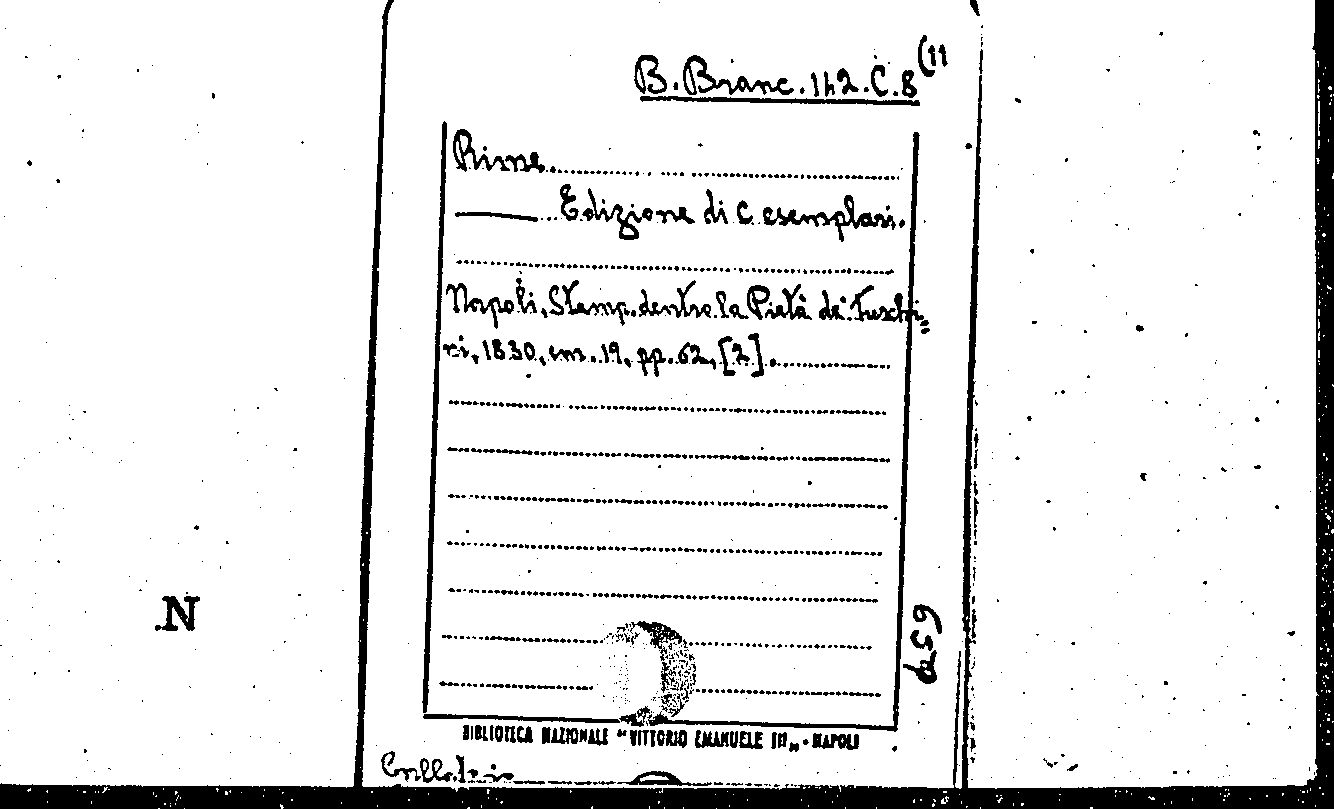 B. Branc. 142. C. 8 (11
Rime.
Edizione di C esemplari.
Napoli, Stamp. dentro la Pietà de' Turchi=
ni, 1830, cm. 19, pp. 62, [2].
N
BIBLIOTECA NAZIONALE "VITTORIO EMANUELE III" - NAPOLI